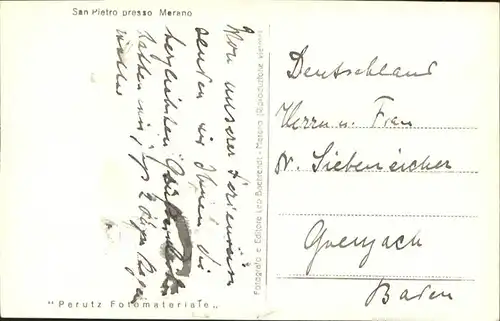 San Pietro presso Merano
Von unserer Ferienreise
senden wir Ihnen die
herzlichsten Grüße.
hatten wir 2 Tage Regen
Fotografo e Editore Leo Baehrendt - Merano (Riproduzione vietata)
Deutschland
Herrn u. Frau
Dr. Siebeneicher
Grenzach
Baden
"Perutz Fotomateriale"